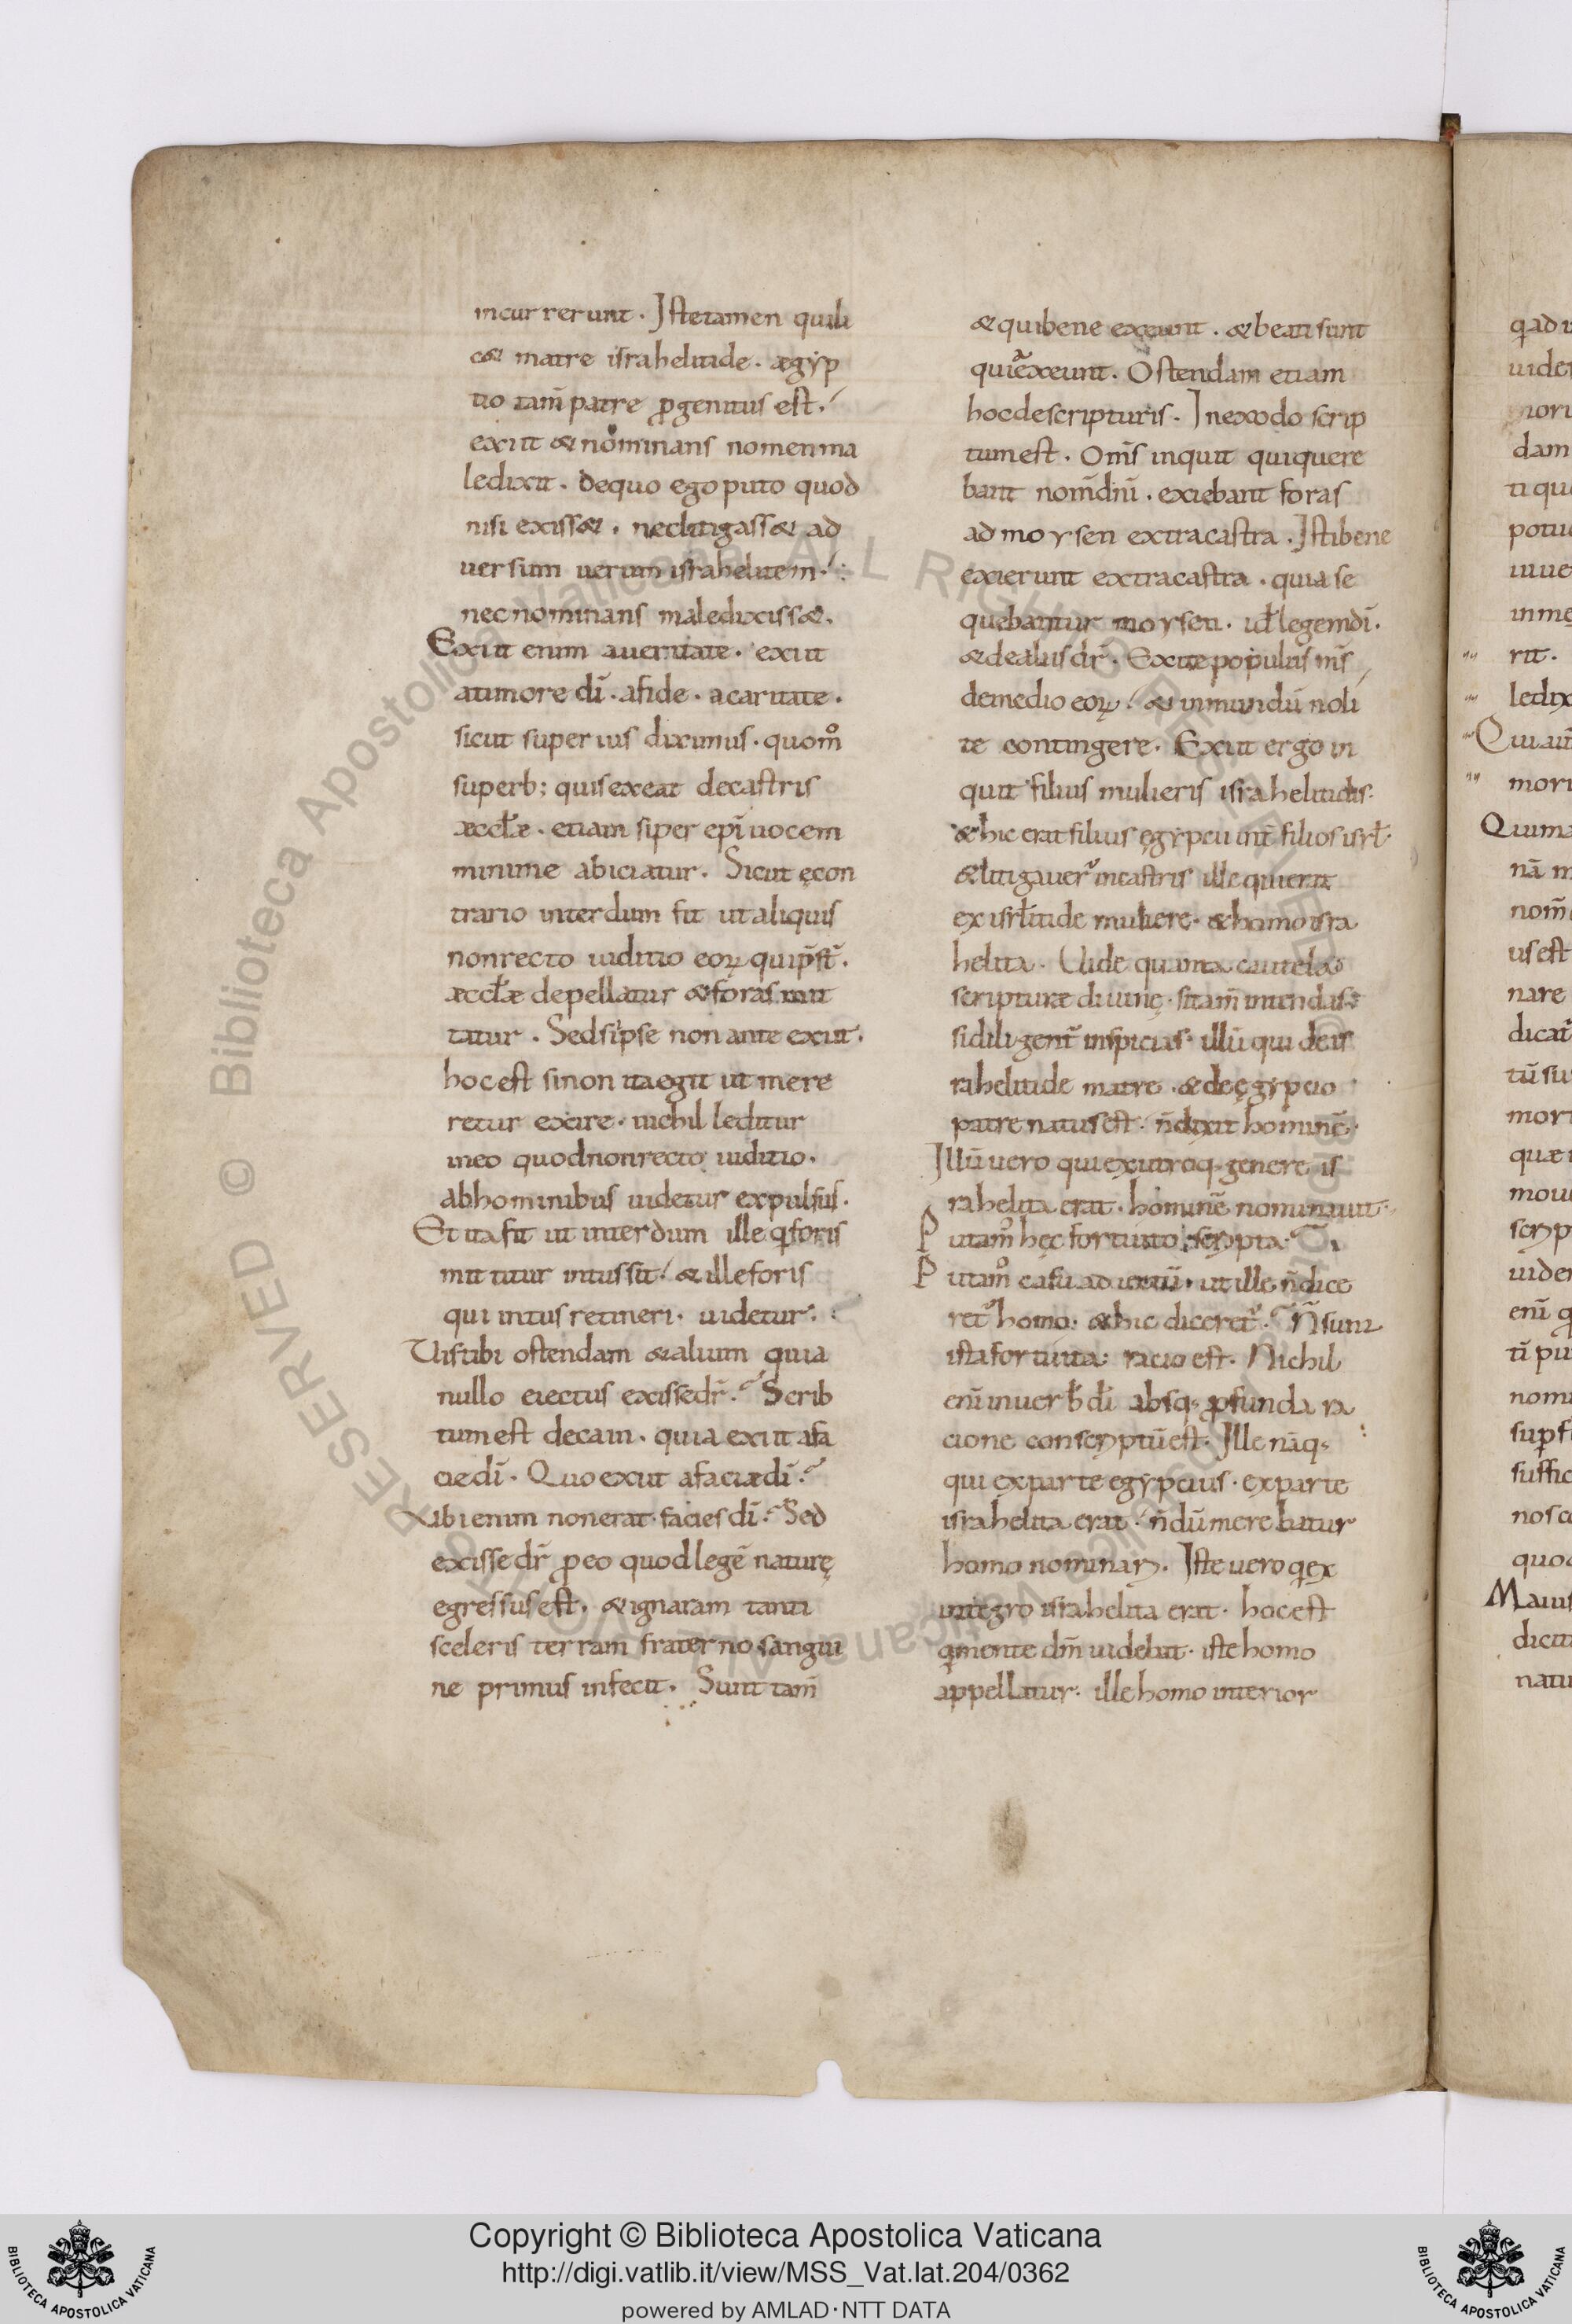 incurrerunt. Iste tamen quili
c& matre israhelitide. ægyp
tio tam̄ patre ꝓgenitus est.
exiit & nominans nomen ma
ledixit. De quo ego puto quod
nisi exiss&. nec litigass& ad
uersum uerum israhelitem.
nec nominans maledixiss&.
Exiit enim a ueritate. exiit
a timore dī. a fide. a caritate.
sicut superius diximus. quom̊
superb; quis exeat de castris
æccłæ. etiam si per epī uocem
minime abiciatur. Sicut ęcon
trario interdum fit ut aliquis
non recto iuditio eoꝝ qui p̄st̄.
æccłæ depellatur & foras mit
tatur. Sed si ipse non ante exiit.
hoc est si non ita egit ut mere
retur exire. nichil leditur
in eo quod non recto iuditio.
ab hominibus uidetur expulsus.
Et ita fit ut interdum ille q foris
mittitur intus sit. & ille foris
qui intus retineri. uidetur.
Uis tibi ostendam & alium quia
nullo eiectus exisse dr̄. Scrib
tum est de cain. quia exiit a fa
cie dī. Quo exiit a faciæ dī.
Ubi enim non erat. facies dī. Sed
exisse dr̄ ꝓ eo quod legē naturę
egressus est. & ignaram tanti
sceleris terram fraterno sangui
ne primus infecit. Sunt tam̄
& qui bene exeunt. & beati sunt
qui exeunt. Ostendam etiam
hoc de scripturis. In exodo scrip
tum est. Om̄s inquit qui quere
bant nom̄ dn̄i. exiebant foras
ad moysen extra castra. Isti bene
exierunt extra castra. quia se
quebantur moysen. id̄ legem dī.
& de aliis dr̄. Exite populus m̄s
de medio eoꝝ. & inmundū noli
te contingere. Exiit ergo in
quit filius mulieris israhelitidis.
& hic erat filius ęgypcii int̄ filios isrł.
& litigauer̄ in castris ille qui erat
ex isrłitide muliere. & homo isra
helita. Uide quanta cautela
scripturæ diuinę. si tam̄ intendas.
si diligent̄ inspicias. illū qui de is
rahelitide matre. & de ęgypcio
patre natus est. n̄ dixit hominē.
Illū uero qui ex utroq; genere is
rahelita erat. hominē nominauit.
Putam̊ hęc fortuito scripta.
Putam̊ casu ut ille n̄ dice
ret̄ homo. & hic diceret̄. N̄ sunt
ista fortuita. racio est. Nichil
enī in uerb̄ dī absq; ꝓfunda ra
cione conscriptū est. Ille nāq;
qui ex parte egypcius. ex parte
israhelita erat. n̄dū merebatur
homo nominari. Iste uero q ex
integro israhelita erat. hoc est
q mente dm̄ uidebat. iste homo
appellatur. ille homo interior
q ad
uide
dam
ti qu
potu
uiue
inme
rit.
ledix
Qui au
mori
Qui ma
nā m
nom̄
us est
nare
dicat
tū su
mort
quæ
scrip
uider
enī q
tī pu
nomi
suffic
nosc
quo
Maius
dicit
natu
Copyright © Biblioteca Apostolica Vaticana
http://digi.vatlib.it/view/MSS_Vat.lat.204/0362
powered by AMLAD·NTT DATA
BIBLIOTECA APOSTOLICA VATICANA
BIBLIOTECA APOSTOLICA VATICANA